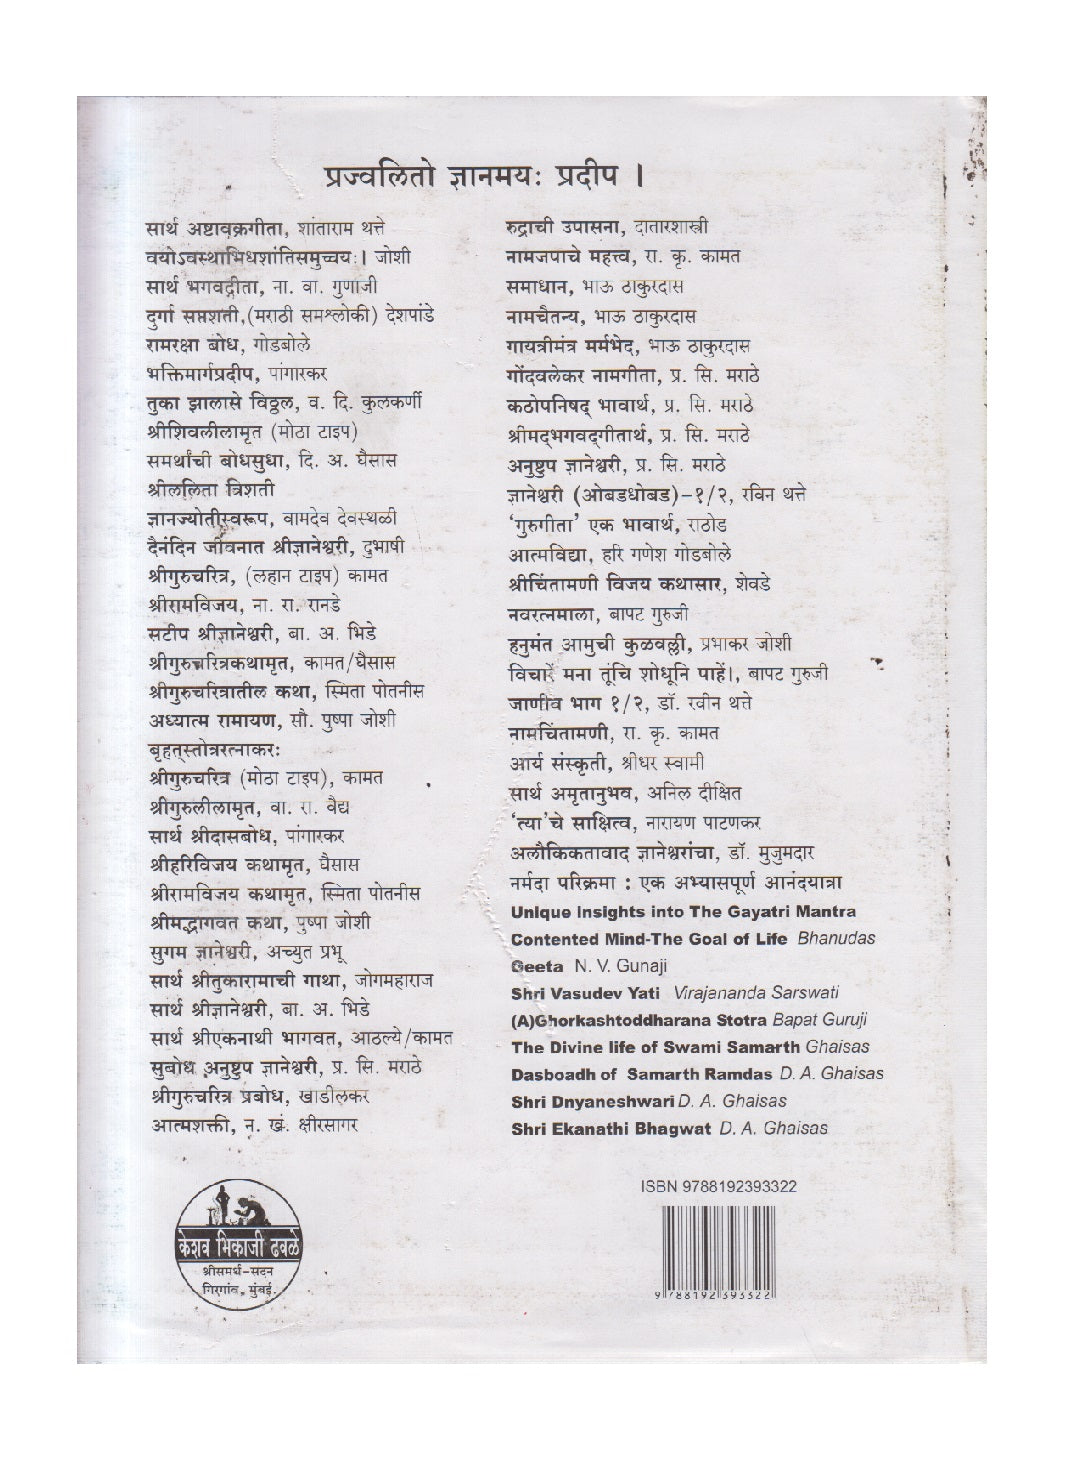 प्रज्वलितो ज्ञानमयः प्रदीप ।
सार्थ अष्टावक्रगीता, शांताराम थत्ते
वयोऽवस्थाभिधशांतिसमुच्चयः। जोशी
सार्थ भगवद्गीता, ना. वा. गुणाजी
दुर्गा सप्तशती,(मराठी समश्लोकी) देशपांडे
रामरक्षा बोध, गोडबोले
भक्तिमार्गप्रदीप, पांगारकर
तुका झालासे विठ्ठल, व. दि. कुलकर्णी
श्रीशिवलीलामृत (मोठा टाइप)
समर्थांची बोधसुधा, दि. अ. घैसास
श्रीललिता त्रिशती
ज्ञानज्योतीस्वरूप, वामदेव देवस्थळी
दैनंदिन जीवनात श्रीज्ञानेश्वरी, दुभाषी
श्रीगुरुचरित्र, (लहान टाइप) कामत
श्रीरामविजय, ना. रा. रानडे
सटीप श्रीज्ञानेश्वरी, बा. अ. भिडे
श्रीगुरुचरित्रकथामृत, कामत/घैसास
श्रीगुरुचरित्रातील कथा, स्मिता पोतनीस
अध्यात्म रामायण, सौ. पुष्पा जोशी
बृहत्स्तोत्ररत्नाकरः
श्रीगुरुचरित्र (मोठा टाइप), कामत
श्रीगुरुलीलामृत, वा. रा. वैद्य
सार्थ श्रीदासबोध, पांगारकर
श्रीहरिविजय कथामृत, घैसास
श्रीरामविजय कथामृत, स्मिता पोतनीस
श्रीमद्भागवत कथा, पुष्पा जोशी
सुगम ज्ञानेश्वरी, अच्युत प्रभू
सार्थ श्रीतुकारामाची गाथा, जोगमहाराज
सार्थ श्रीज्ञानेश्वरी, बा. अ. भिडे
सार्थ श्रीएकनाथी भागवत, आठल्ये/कामत
सुबोध अनुष्टुप ज्ञानेश्वरी, प्र. सि. मराठे
श्रीगुरुचरित्र प्रबोध, खाडीलकर
आत्मशक्ती, न. खं. क्षीरसागर
रुद्राची उपासना, दातारशास्त्री
नामजपाचे महत्त्व, रा. कृ. कामत
समाधान, भाऊ ठाकुरदास
नामचैतन्य, भाऊ ठाकुरदास
गायत्रीमंत्र मर्मभेद, भाऊ ठाकुरदास
गोंदवलेकर नामगीता, प्र. सि. मराठे
कठोपनिषद् भावार्थ, प्र. सि. मराठे
श्रीमद्‌भगवद्‌गीतार्थ, प्र. सि. मराठे
अनुष्टुप ज्ञानेश्वरी, प्र. सि. मराठे
ज्ञानेश्वरी (ओबडधोबड)-१/२, रविन थत्ते
'गुरुगीता' एक भावार्थ, राठोड
आत्मविद्या, हरि गणेश गोडबोले
श्रीचिंतामणी विजय कथासार, शेवडे
नवरत्नमाला, बापट गुरुजी
हनुमंत आमुची कुळवल्ली, प्रभाकर जोशी
विचारें मना तूंचि शोधूनि पाहें।, बापट गुरुजी
जाणीव भाग १/२, डॉ. रवीन थत्ते
नामचिंतामणी, रा. कृ. कामत
आर्य संस्कृती, श्रीधर स्वामी
सार्थ अमृतानुभव, अनिल दीक्षित
'त्या'चे साक्षित्व, नारायण पाटणकर
अलौकिकतावाद ज्ञानेश्वरांचा, डॉ. मुजुमदार
नर्मदा परिक्रमा : एक अभ्यासपूर्ण आनंदयात्रा
Unique Insights into The Gayatri Mantra
Contented Mind-The Goal of Life Bhanudas
Geeta N. V. Gunaji
Shri Vasudev Yati Virajananda Sarswati
(A)Ghorkashtoddharana Stotra Bapat Guruji
The Divine life of Swami Samarth Ghaisas
Dasboadh of Samarth Ramdas D. A. Ghaisas
Shri Dnyaneshwari D. A. Ghaisas
Shri Ekanathi Bhagwat D. A. Ghaisas
केशव भिकाजी ढवळे
श्रीसमर्थ-सदन
गिरगांव, मुंबई.
ISBN 9788192393322
9 788192 393322